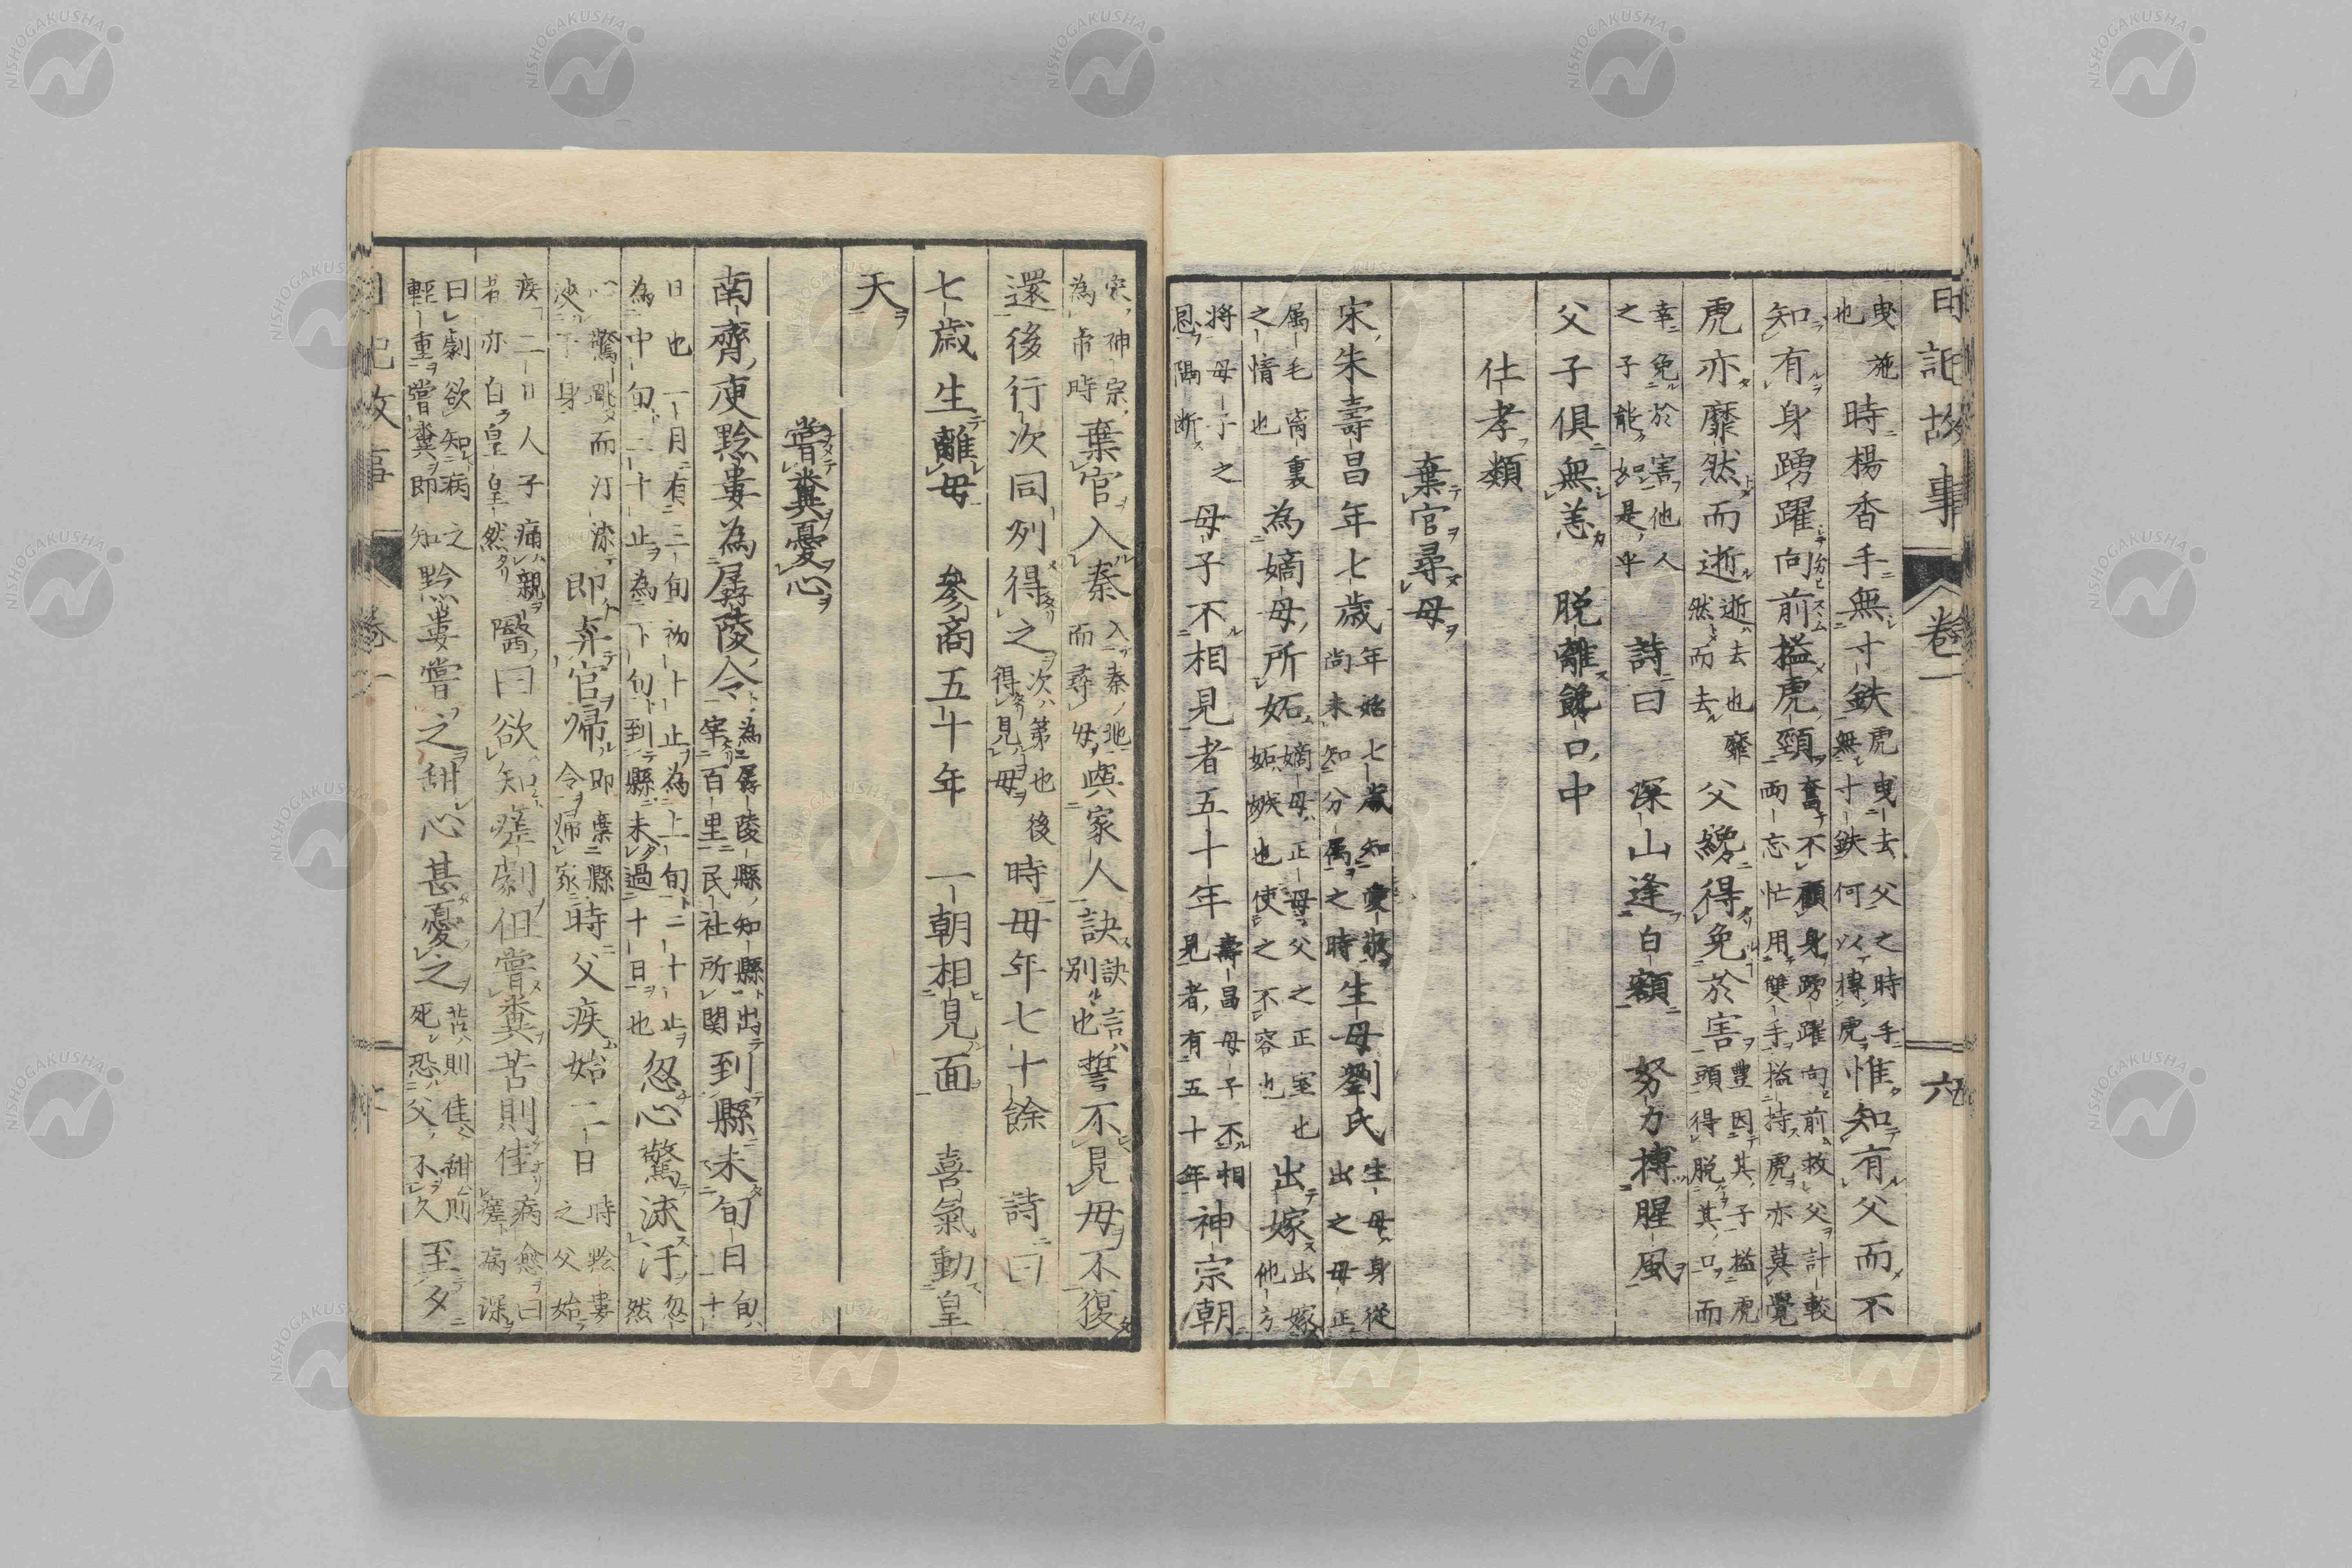 日記故事 卷一 六
曳 也 施 時楊香手無寸鉄 虎曳去父之時手 無寸鉄何以搏虎 惟知有父而不
知有身踴躍向前搤虎頸 奮不顧身踴躍向前救父計較 両忘忙用雙手搤持虎亦莫覺
虎亦靡然而逝 逝去也靡 然而去 父纔得免於害 豊因其子搤虎 頭得脱其口而
幸免於害他人 之子能如是乎 詩曰 深山逢白額 努力搏腥風
父子俱無恙 脱離饞口中
仕孝類
棄官尋母
宋朱壽昌年七歲 年始七歲知愛敬 尚未知分属之時 生母劉氏 生母身從 出之母正
属毛离裏 之情也 為嫡母所妬 嫡母正母父之正室也 妬嫉也使之不容也 出嫁 出嫁 他方
將母子之 恩隔断 母子不相見者五十年 壽昌母子不相 見者有五十年 神宗朝
宋神宗 為帝時 棄官入秦 入秦地 而尋母 與家人訣 訣言 別也 誓不見母不復
還後行次同列得之 次第也後 得見母 時母年七十餘 詩曰
七歲生離母 參商五十年 一朝相見面 喜氣動皇
天
嘗糞憂心
南齊庾黔婁為孱陵令 為孱陵縣知縣出 宰百里民社所関 到縣未旬日 旬 十
日也一月有三旬初十止為上旬二十止 為中旬三十止為下旬到縣未過十日也 忽心驚流汗 忽 然
心驚跳而汗流 浹下身 即弃官帰 即棄縣 令帰家 時父疾始二日 時黔婁 之父始
疾二日人子痛親 者亦白皇皇然 醫曰欲知瘥劇但嘗糞苦則佳 病愈曰 瘥病深
曰劇欲知病之 輕重嘗糞即知 黔婁嘗之甜心甚憂之 苦則佳甜則 死恐父不久 至夕
日記故事 卷一
NISHOGAKUSHA